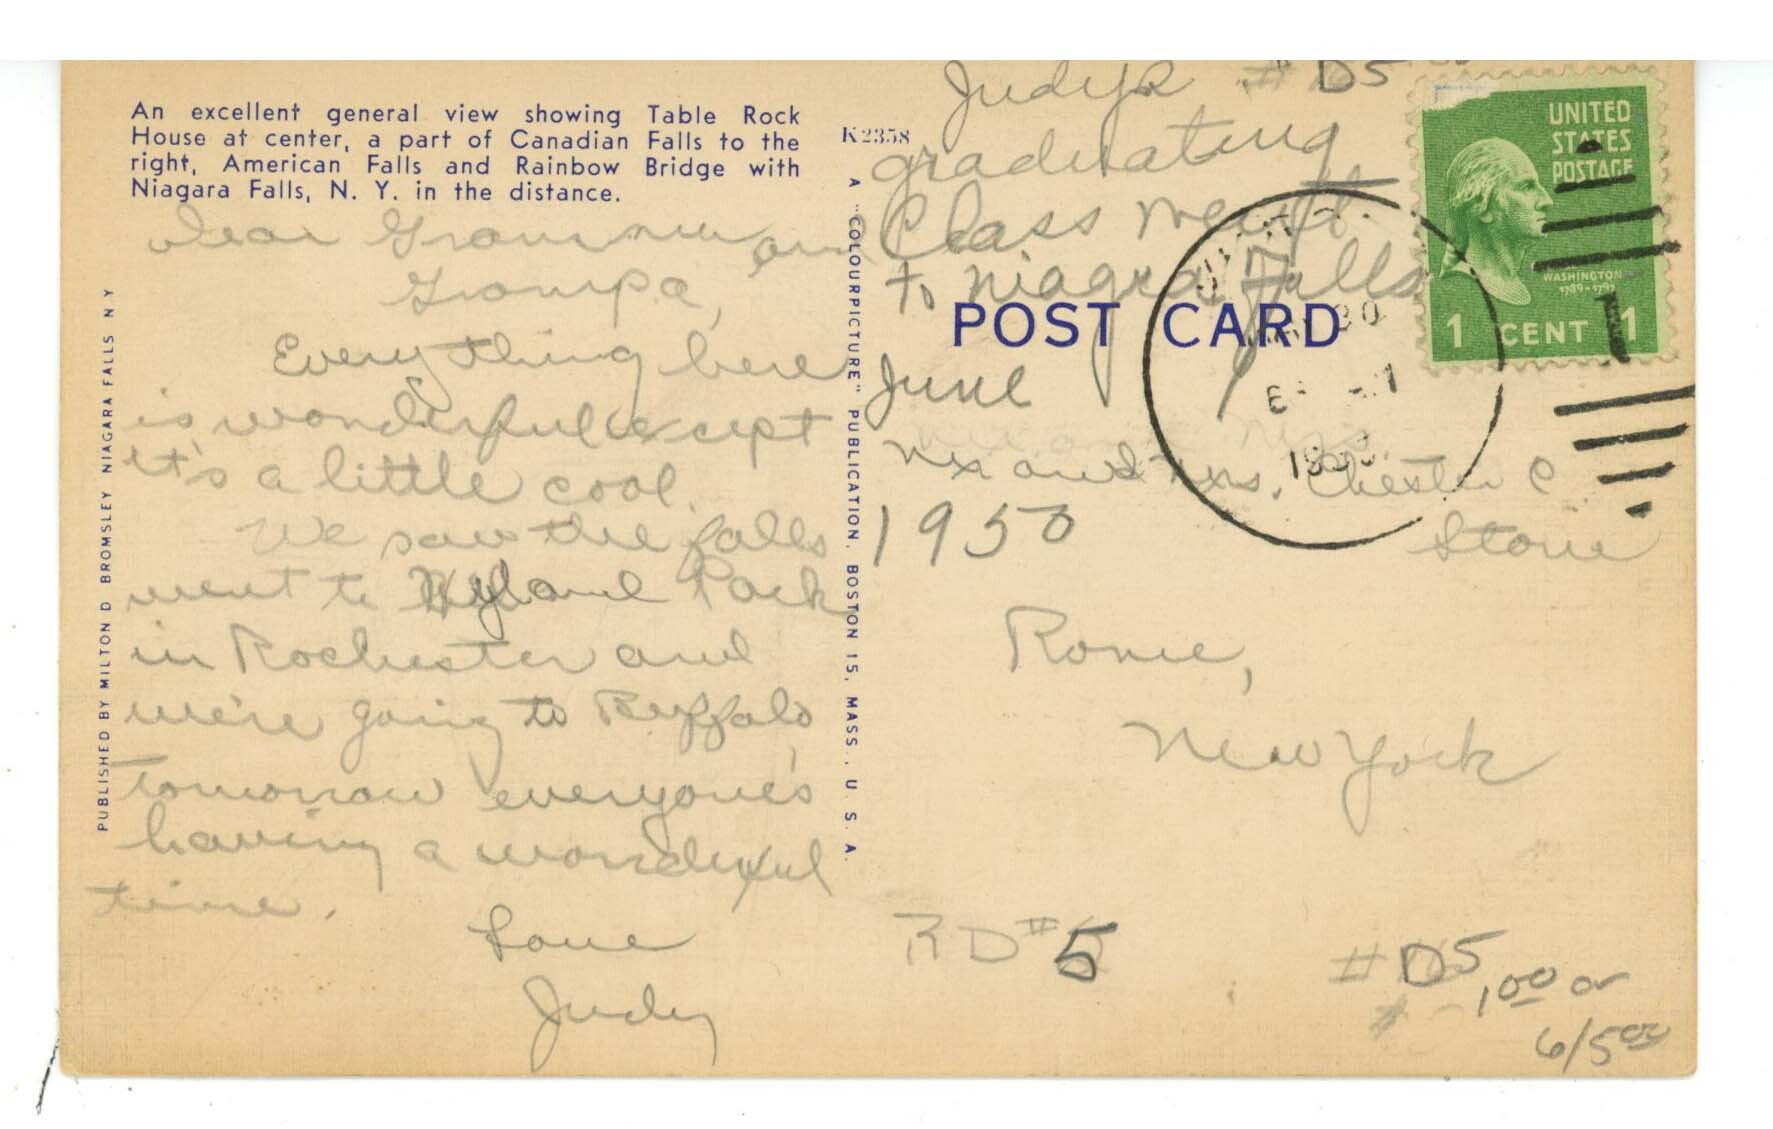 An excellent general view showing Table Rock
House at center, a part of Canadian Falls to the
right, American Falls and Rainbow Bridge with
Niagara Falls, N. Y. in the distance.
Dear Gramma and
Grampa,
Everything here
is wonderful except
it's a little cool.
We saw the falls
went to Hyland Park
in Rochester and
we're going to Buffalo
tomorrow everyone's
having a wonderful
time.
Love
Judy
PUBLISHED BY MILTON D BROMSLEY NIAGARA FALLS N Y
K2358
A "COLOURPICTURE" PUBLICATION, BOSTON 15, MASS., U. S. A.
Judy's # D5
graduating
Class went
to Niagra Falls
June
1950
POST CARD
Mr and Mrs. Chester C
Stone
Rome,
New York
RD #5
#D5
1.00 or
6/5.00
UNITED
STATES
POSTAGE
WASHINGTON
1789-1797
1 CENT 1
30